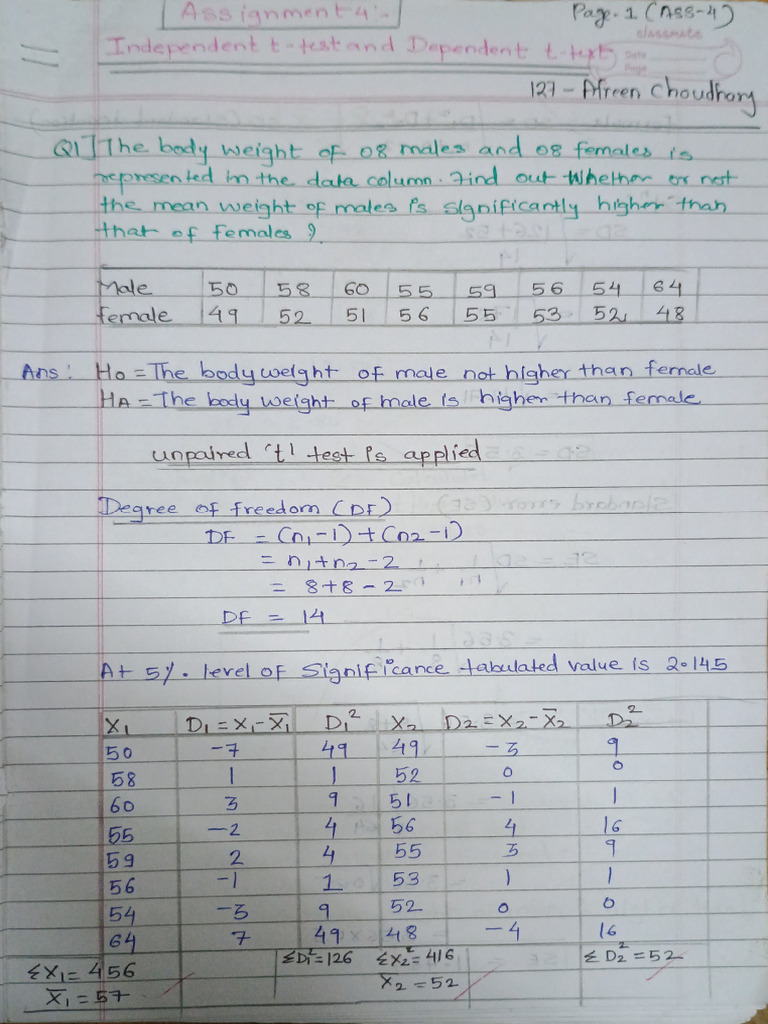 Assignment 4:-
Page. 1 (ASS-4)
classmate
Date
Page
Independent t-test and Dependent t-text
127 - Afreen Choudhary
Q1] The body weight of 08 males and 08 females is
represented in the data column. Find out whether or not
the mean weight of males is significantly higher than
that of females ?
Male 50 58 60 55 59 56 54 64
female 49 52 51 56 55 53 52 48
Ans: H0 = The body weight of male not higher than female
HA = The body weight of male is higher than female
unpaired 't' test is applied
Degree of freedom (DF)
DF = (n1-1) + (n2-1)
= n1+n2-2
= 8+8-2
DF = 14
At 5%. level of Significance tabulated value is 2.145
X1 D1 = X1-X̅1 D1² X2 D2 = X2-X̅2 D2²
50 -7 49 49 -3 9
58 1 1 52 0 0
60 3 9 51 -1 1
55 -2 4 56 4 16
59 2 4 55 3 9
56 -1 1 53 1 1
54 -3 9 52 0 0
64 7 49 48 -4 16
ΣX1 = 456 ΣD1²=126 ΣX2²=416 ΣD2²=52
X̅1 = 57 X2 = 52